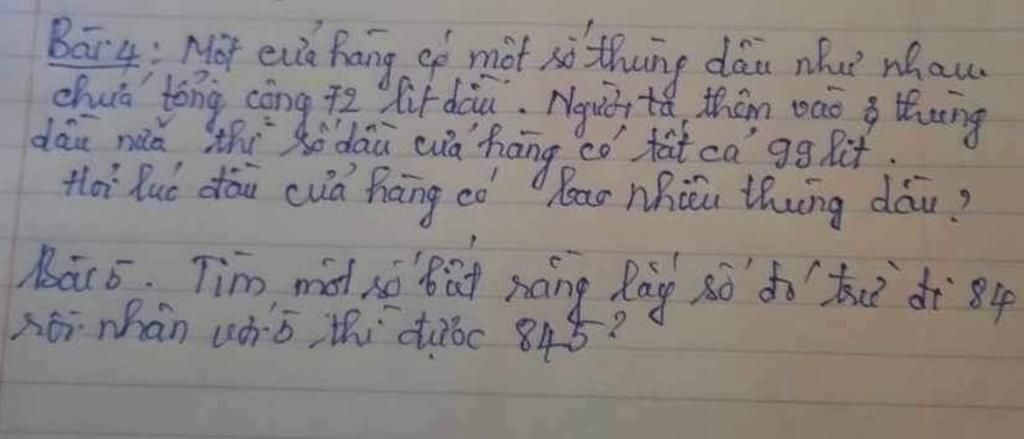 Bài 4: Một cửa hàng có một số thùng dầu như nhau
chứa tổng cộng 72 lít dầu. Người ta thêm vào 3 thùng
dầu nữa thì số dầu cửa hàng có tất cả 99 lít.
Hỏi lúc đầu cửa hàng có bao nhiêu thùng dầu?
Bài 5. Tìm một số biết rằng lấy số đó trừ đi 84
rồi nhân với 5 thì được 845?